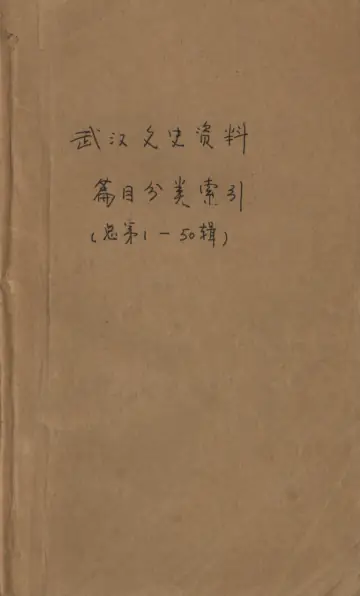 武汉文史资料
篇目分类索引
(总第1-50辑)